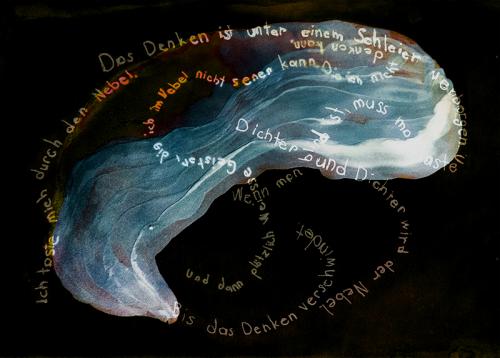 Das Denken ist unter einem Schleier verborgen
denken kann.
ich im Nebel nicht kann. Die ich
Ich taste mich durch den Nebel.
muss man
Geister, die
Dichter und Dichter wird der Nebel
Bis das Denken verschwindet
Wenn man
und dann plötzlich